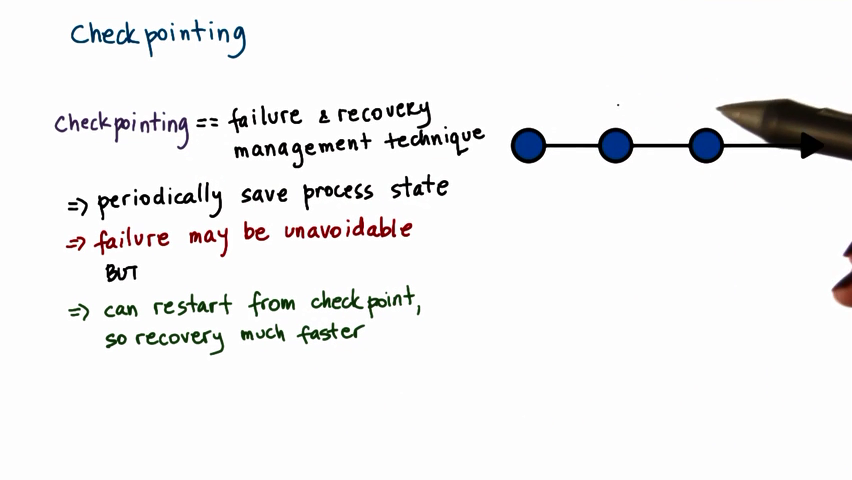 Checkpointing
Checkpointing == failure & recovery
management technique
=> periodically save process state
=> failure may be unavoidable
BUT
=> can restart from checkpoint,
so recovery much faster